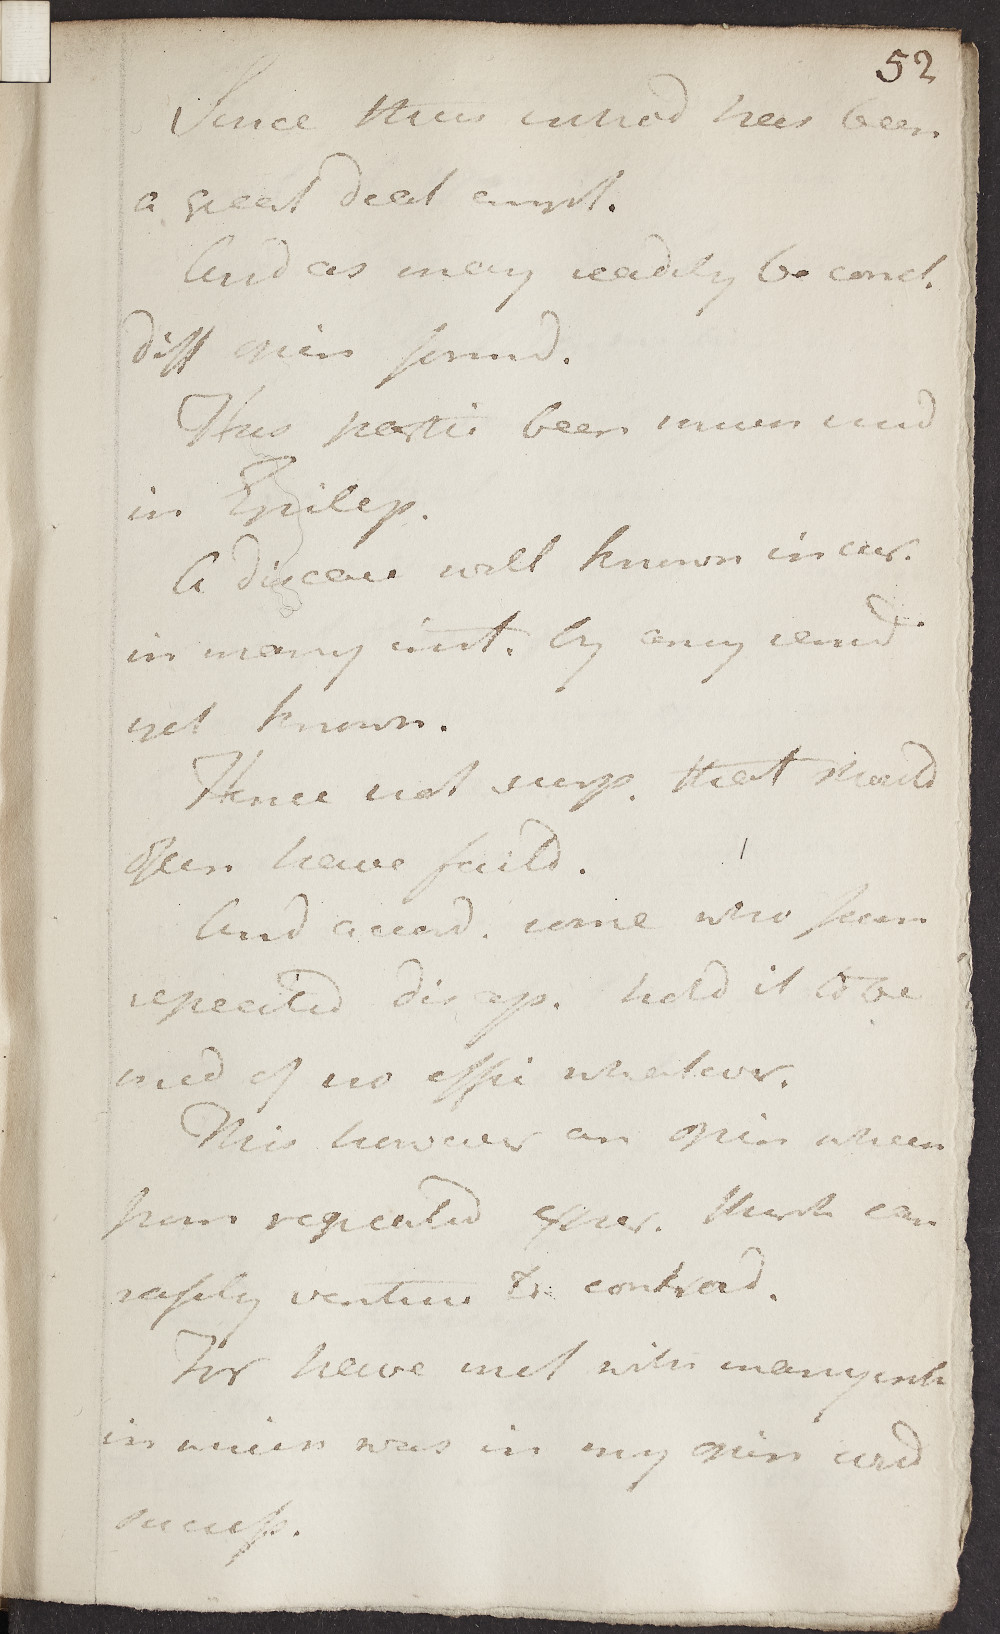 52
Since thus introd has been
a great deal empl.
And as may readily be conc.
diff opin formd.
Has partic been much usd
in Epilep.
A disease well known incur.
in many inst. by any remd
yet known.
Hence not surp. that should
often have faild.
And accord. some who from
repeated disap. hold it to be
med of no effic whatever.
This however an opin which
from repeated exper. think can
safely venture to contrad.
For have met with many inst
in which was in my opin usd
success.